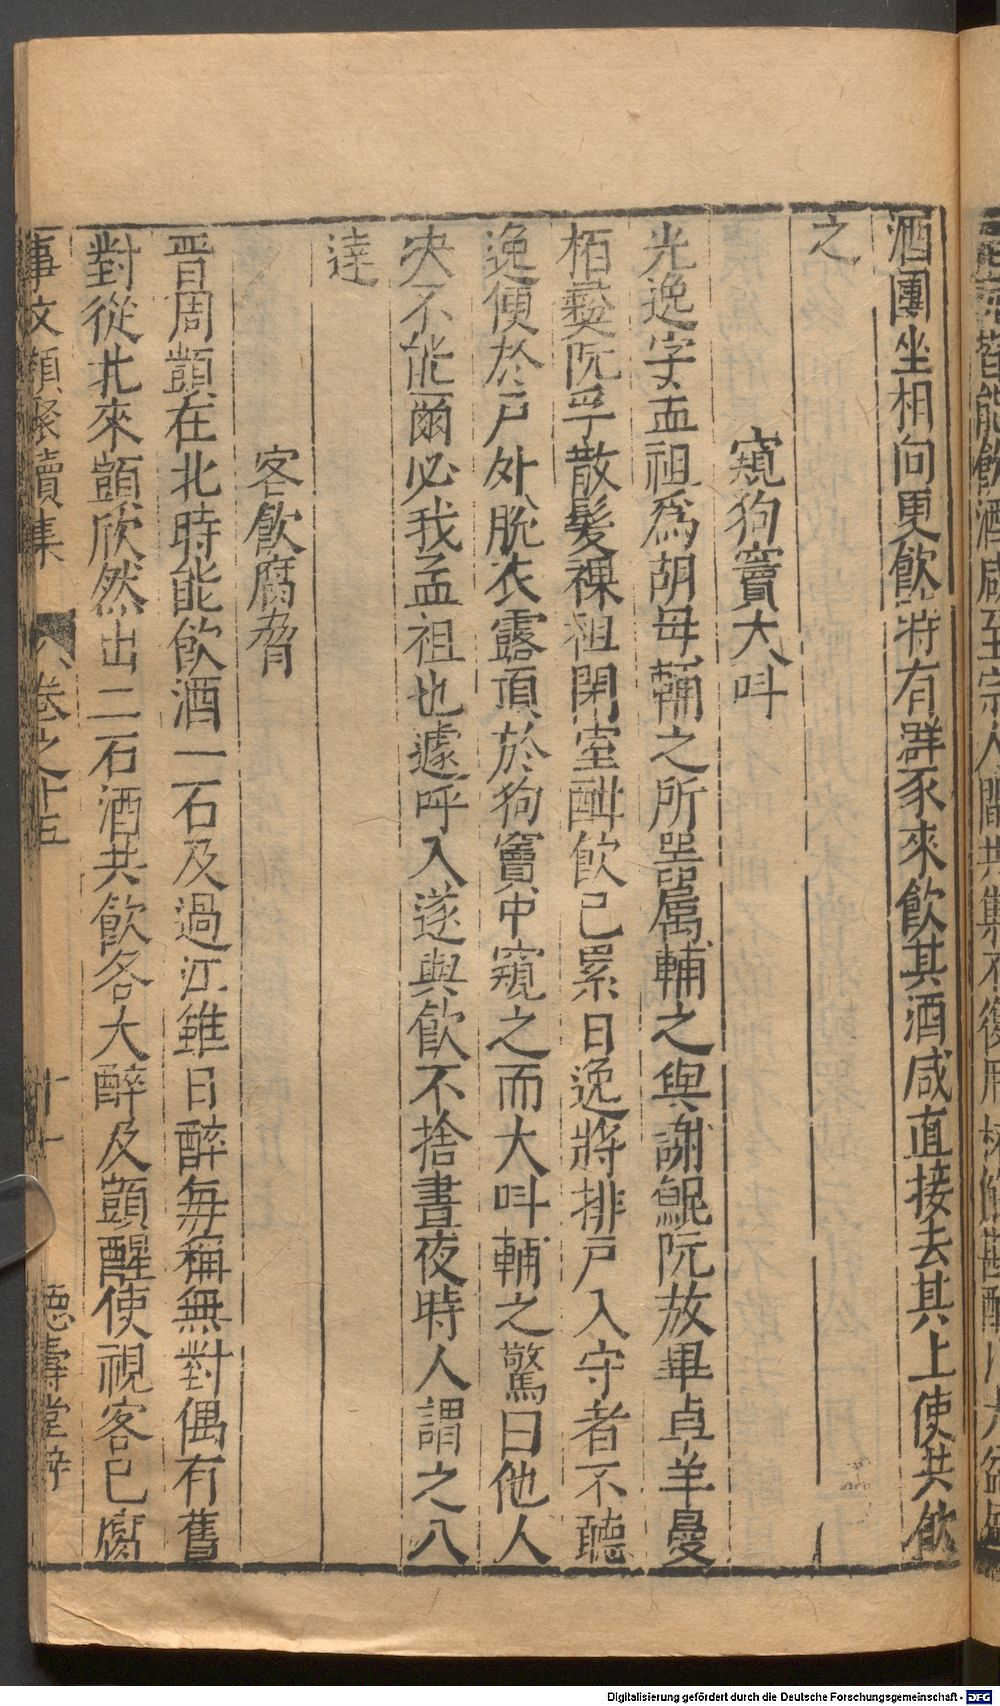 酒團坐相向更飲時有群豕來飲其酒咸直接去其上使共飲
之
窺狗竇大呌
光逸字孟祖爲胡毋輔之所器属輔之與謝鯤阮放畢卓羊曼
栢彞阮孚散髮裸袒閉室酣飲已累日逸將排戸入守者不聽
逸便於戸外脫衣露頂於狗竇中窺之而大呌輔之驚曰他人
决不能爾必我孟祖也遽呼入遂與飲不捨晝夜時人謂之八
達
客飲腐脅
晋周顗在北時能飲酒一石及過江雖日醉每稱無對偶有舊
對從北來顗欣然出二石酒共飲各大醉及顗醒使視客已腐
事文類聚續集 卷之十五 十一 德壽堂梓
皆能飲酒咸至宗人間共集不復用杯觴斟酌以大盆盛
Digitalisierung gefördert durch die Deutsche Forschungsgemeinschaft - DFG